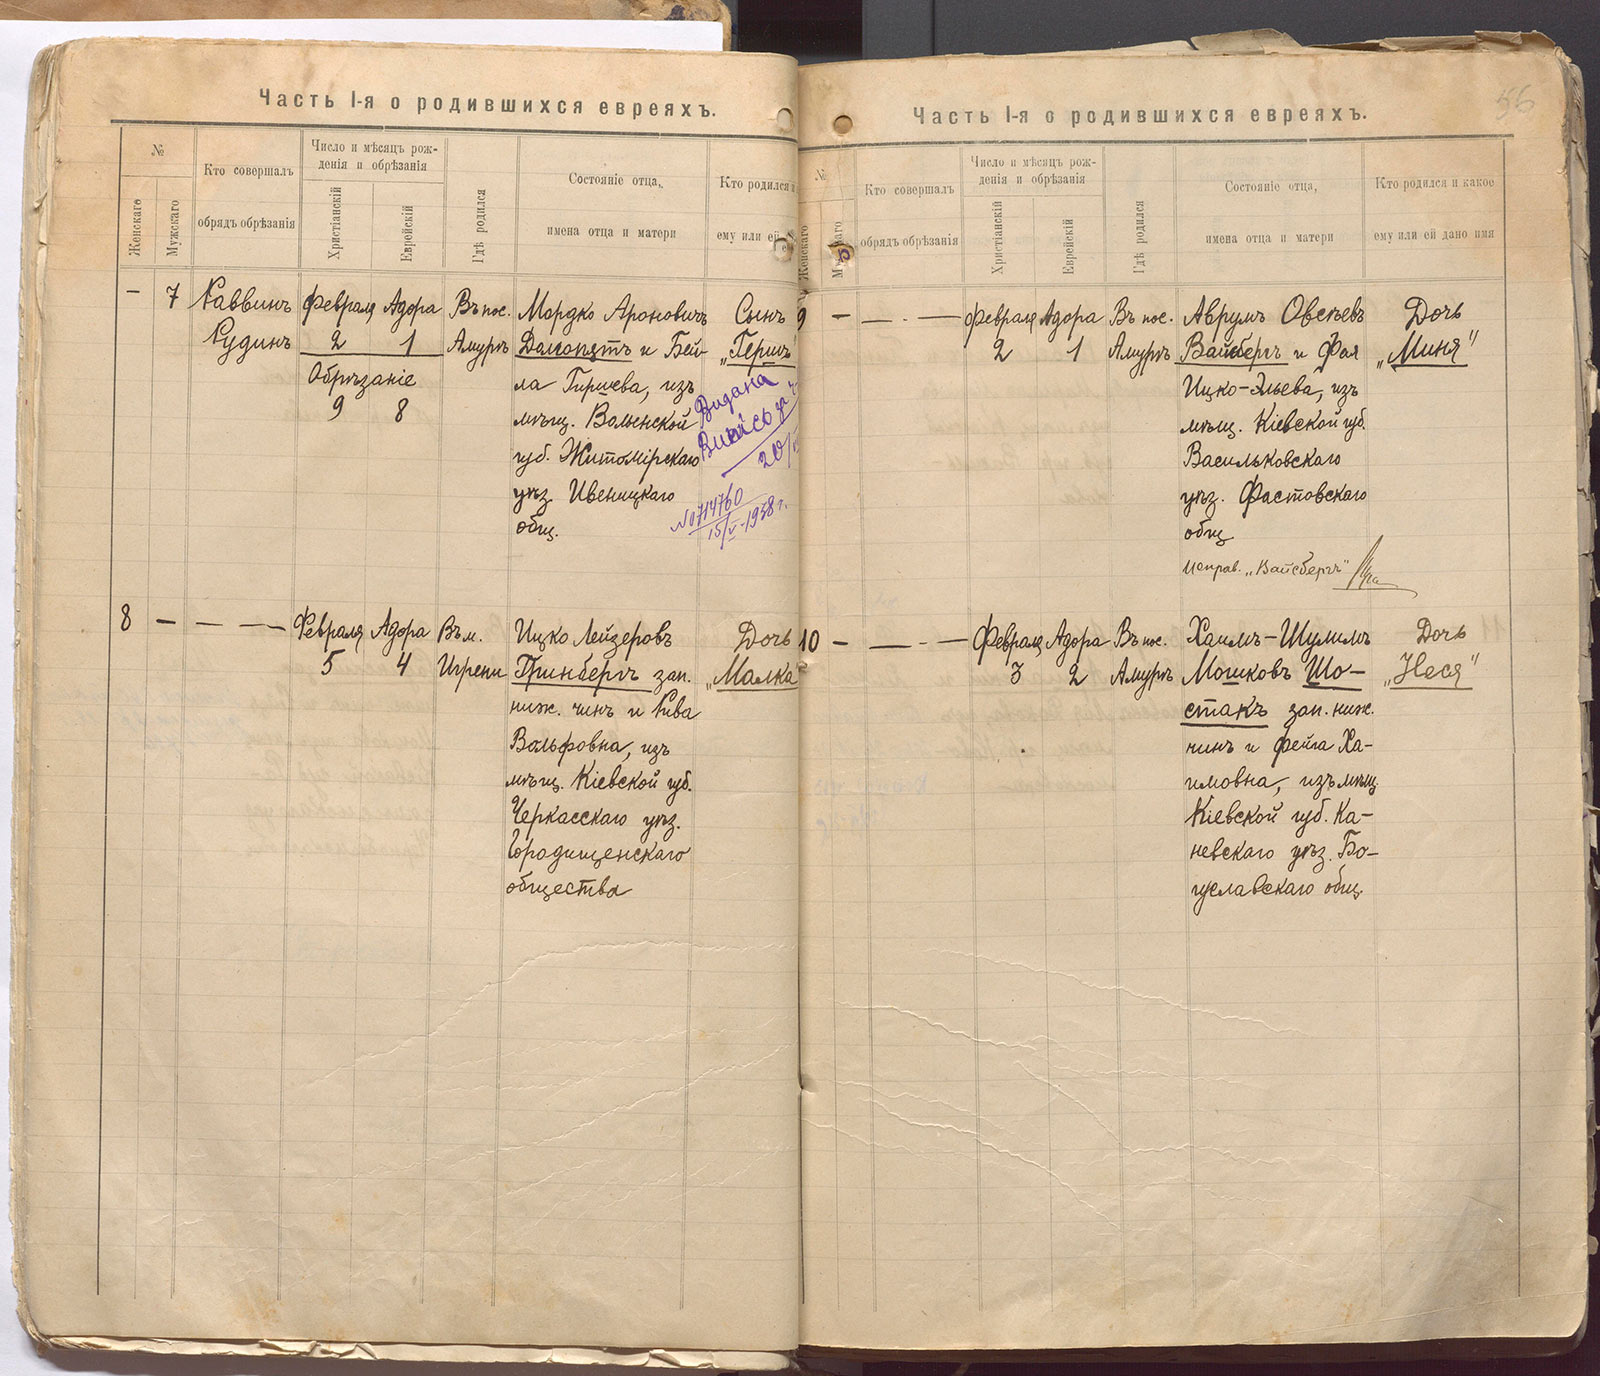 Часть I-я о родившихся евреяхъ.
№
Женскаго
Мужскаго
Кто совершалъ
обрядъ обрѣзанія
Число и мѣсяцъ рож-
денія и обрѣзанія
Христіанскій
Еврейскій
Гдѣ родился
Состояніе отца,
имена отца и матери
Кто родился и
ему или ей
— 7
Раввинъ
Рудинъ
Февраля Адора
2 1
Обрѣзаніе
9 8
Въ пос.
Амурѣ
Мордко Ароновичъ
и Бей-
ла Гиршева, изъ
мѣщ. Волынской
губ. Житомірскаго
уѣз. Ивеницкаго
общ.
Сынъ
„Гершъ"
Видана
20/
№714760
15/V-1938 г.
8 — — —
Февраля Адора
5 4
Въ м.
Игрени
Ицко Лейзеровъ
Гринбергъ зап.
ниж. чинъ и Рива
Вольфовна, изъ
мѣщ. Кіевской губ.
Черкасскаго уѣз.
Городищенскаго
общества
Дочь
„Малка"
56
Часть I-я о родившихся евреяхъ.
№
Женскаго
Кто совершалъ
обрядъ обрѣзанія
Число и мѣсяцъ рож-
денія и обрѣзанія
Христіанскій
Еврейскій
Гдѣ родился
Состояніе отца,
имена отца и матери
Кто родился и какое
ему или ей дано имя
9 — — —
Февраля Адора
2 1
Въ пос.
Амурѣ
Аврумъ Овсѣевъ
Вайсбергъ и Фая
Ицко-Эльева, изъ
мѣщ. Кіевской губ.
Васильковскаго
уѣз. Фастовскаго
общ
исправ. „Вайсбергъ"
Дочь
„Миня"
10 — — —
Февраля Адора
3 2
Въ пос.
Амурѣ
Хаимъ-Шулимъ
Мошковъ Шо-
стакъ зап. ниж.
чинъ и Фейга Ха-
имовна, изъ мѣщ.
Кіевской губ. Ка-
невскаго уѣз. Бо-
гуславскаго общ.
Дочь
„Неся"